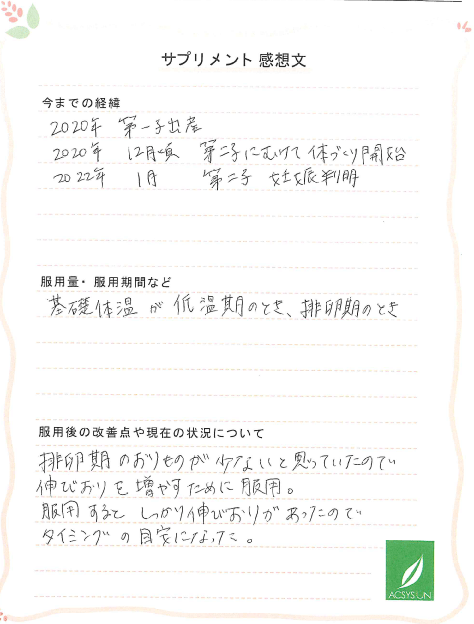 サプリメント 感想文
今までの経緯
2020年 第一子出産
2020年 12月頃 第二子にむけて体づくり開始
2022年 1月 第二子 妊娠判明
服用量・服用期間など
基礎体温が低温期のとき、排卵期のとき
服用後の改善点や現在の状況について
排卵期のおりものが少ないと思っていたので
伸びおりを増やすために服用。
服用すると しっかり伸びおりがあったので
タイミングの目安になった。
ACSYSUN